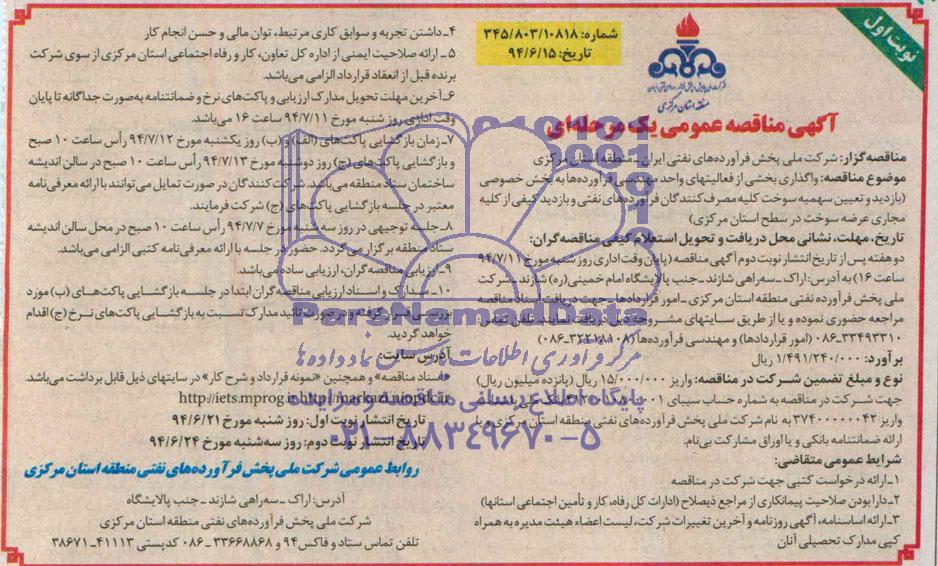 نوبت اول
شماره: ۳۴۵/۸۰۳/۱۰۸۱۸
تاریخ: ۹۴/۶/۱۵
منطقه استان مرکزی
آگهی مناقصه عمومی یک مرحله‌ای
مناقصه‌گزار: شرکت ملی پخش فرآورده‌های نفتی ایران ـ منطقه استان مرکزی
موضوع مناقصه: واگذاری بخشی از فعالیتهای واحد مهندسی فرآورده‌ها به بخش خصوصی
(بازدید و تعیین سهمیه سوخت کلیه مصرف‌کنندگان فرآورده‌های نفتی و بازدید کیفی از کلیه
مجاری عرضه سوخت در سطح استان مرکزی)
تاریخ، مهلت، نشانی محل دریافت و تحویل استعلام کیفی مناقصه‌گران:
دو هفته پس از تاریخ انتشار نوبت دوم آگهی مناقصه (پایان وقت اداری روز شنبه مورخ ۹۴/۷/۱۱
ساعت ۱۶) به آدرس: اراک ـ سه‌راهی شازند ـ جنب پالایشگاه امام خمینی (ره) شازند ـ شرکت
ملی پخش فرآورده نفتی منطقه استان مرکزی ـ امور قراردادها ـ جهت دریافت اسناد مناقصه
مراجعه حضوری نموده و یا از طریق سایتهای مشروحه ذیل دریافت نمایند. تلفن تماس
۰۸۶-۳۳۴۹۳۳۱۰ (امور قراردادها) و مهندسی فرآورده‌ها (۰۸۶-۳۲۲۲۸۱۰۸)
برآورد: ۱/۴۹۱/۲۴۰/۰۰۰ ریال
نوع و مبلغ تضمین شرکت در مناقصه: واریز ۱۵/۰۰۰/۰۰۰ ریال (پانزده میلیون ریال)
جهت شرکت در مناقصه به شماره حساب سیبای
واریز ۳۷۴۰۰۰۰۰۰۴۲ به نام شرکت ملی پخش فرآورده‌های نفتی منطقه استان مرکزی و یا
ارائه ضمانتنامه بانکی و یا اوراق مشارکت بی‌نام.
شرایط عمومی متقاضی:
۱ـ ارائه درخواست کتبی جهت شرکت در مناقصه
۲ـ دارا بودن صلاحیت پیمانکاری از مراجع ذیصلاح (ادارات کل رفاه، کار و تأمین اجتماعی استانها)
۳ـ ارائه اساسنامه، آگهی روزنامه و آخرین تغییرات شرکت، لیست اعضاء هیئت مدیره به همراه
کپی مدارک تحصیلی آنان
۴ـ داشتن تجربه و سوابق کاری مرتبط، توان مالی و حسن انجام کار
۵ـ ارائه صلاحیت ایمنی از اداره کل تعاون، کار و رفاه اجتماعی استان مرکزی از سوی شرکت
برنده قبل از انعقاد قرارداد الزامی می‌باشد.
۶ـ آخرین مهلت تحویل مدارک ارزیابی و پاکت‌های نرخ و ضمانتنامه به‌صورت جداگانه تا پایان
وقت اداری روز شنبه مورخ ۹۴/۷/۱۱ ساعت ۱۶ می‌باشد.
۷ـ زمان بازگشایی پاکت‌های (الف) و (ب) روز یکشنبه مورخ ۹۴/۷/۱۲ رأس ساعت ۱۰ صبح
و بازگشایی پاکت‌های (ج) روز دوشنبه مورخ ۹۴/۷/۱۳ رأس ساعت ۱۰ صبح در سالن اندیشه
ساختمان ستاد منطقه می‌باشد. شرکت‌کنندگان در صورت تمایل می‌توانند با ارائه معرفی‌نامه
معتبر در جلسه بازگشایی پاکت‌های (ج) شرکت فرمایند.
۸ـ جلسه توجیهی در روز سه‌شنبه مورخ ۹۴/۷/۷ رأس ساعت ۱۰ صبح در محل سالن اندیشه
ستاد منطقه برگزار می‌گردد. حضور در جلسه با ارائه معرفی‌نامه کتبی الزامی می‌باشد.
۹ـ ارزیابی مناقصه‌گران، ارزیابی ساده می‌باشد.
۱۰ـ مدارک و اسناد ارزیابی مناقصه‌گران ابتدا در جلسه بازگشایی پاکت‌های (ب) مورد
بررسی قرار گرفته و در صورت تائید مدارک نسبت به بازگشایی پاکت‌های نرخ (ج) اقدام
خواهد گردید.
آدرس سایت:
«اسناد مناقصه» و همچنین «نمونه قرارداد و شرح کار» در سایتهای ذیل قابل برداشت می‌باشد.
http://iets.mprog.ir http://markazi.niopdc.ir
تاریخ انتشار نوبت اول: روز شنبه مورخ ۹۴/۶/۲۱
تاریخ انتشار نوبت دوم: روز سه‌شنبه مورخ ۹۴/۶/۲۴
روابط عمومی شرکت ملی پخش فرآورده‌های نفتی منطقه استان مرکزی
آدرس: اراک ـ سه‌راهی شازند ـ جنب پالایشگاه
شرکت ملی پخش فرآورده‌های نفتی منطقه استان مرکزی
تلفن تماس ستاد و فاکس ۹۴ و ۳۳۶۶۸۸۶۸ ـ ۰۸۶ کدپستی ۴۱۱۱۳ـ۳۸۶۷۱
ParsNamadData
مرکز فرآوری اطلاعات پارس نماد داده‌ها
پایگاه اطلاع رسانی مناقصه و مزایده
۰۲۱-۸۸۳۴۹۶۷۰-۵